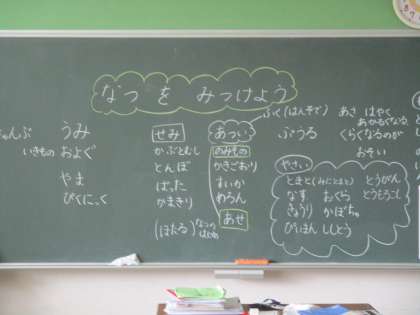 なつ を みつけよう
うみ
いきもの およぐ
やま
ぴくにっく
せみ
かぶとむし
とんぼ
ばった
かまきり
(ほたる) なつの
はじめ
あつい
のみもの
かきごおり
すいか
めろん
あせ
ふく (はんそで)
ぷうる
あさ はやく
あかるくなる
くらくなるのが
おそい
やさい
とまと (みにとまと) とうがん
なす おくら とうもろこし
きゅうり かぼちゃ
ぴいまん ししとう